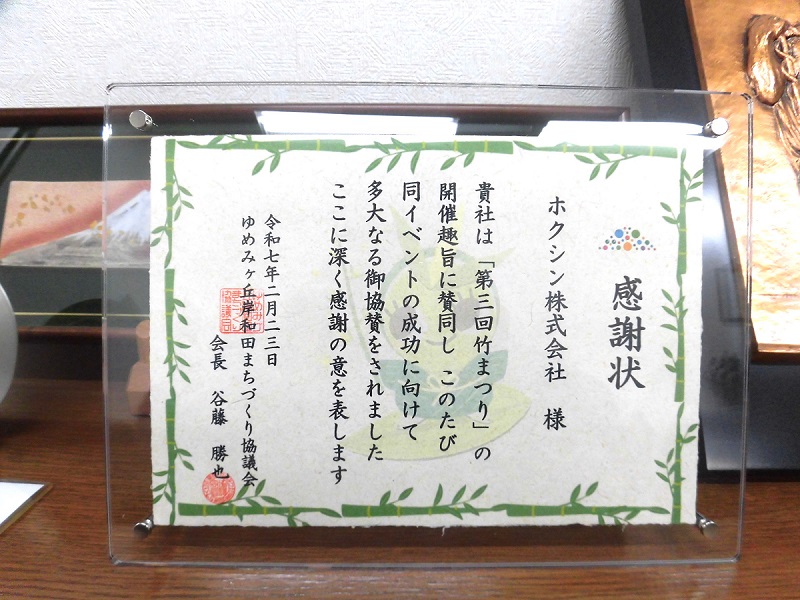 感謝状
ホクシン株式会社 様
貴社は「第三回竹まつり」の
開催趣旨に賛同し このたび
同イベントの成功に向けて
多大なる御協賛をされました
ここに深く感謝の意を表します
令和七年二月二三日
ゆめみヶ丘岸和田まちづくり協議会
会長 谷藤 勝也